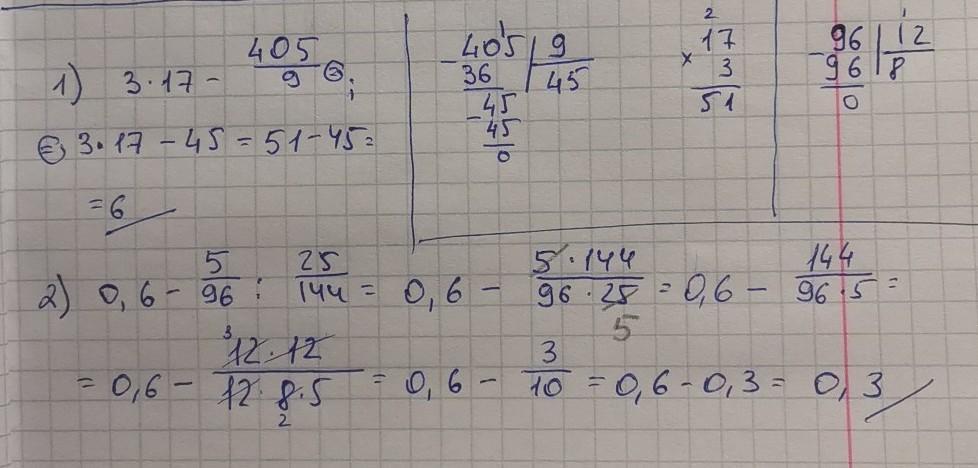 1) 3·17 - 405/9 ⊜;
⊜ 3·17 - 45 = 51 - 45 =
= 6
-405 | 9
36 | 45
-45
45
0
2
17
× 3
51
1
-96 | 12
96 | 8
0
2) 0,6 - 5/96 : 25/144 = 0,6 - 5·144/96·25 = 0,6 - 144/96·5 =
5
= 0,6 - 12·12/12·8·5 = 0,6 - 3/10 = 0,6 - 0,3 = 0,3
3
2